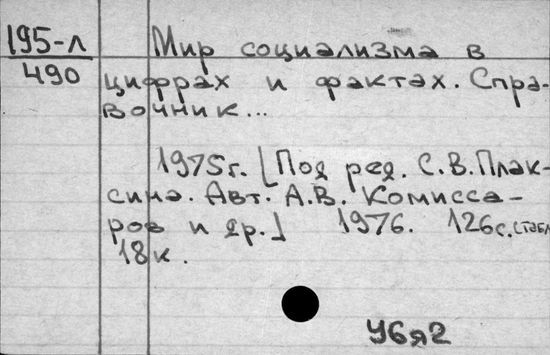 195-л
490
Мир социализма в
цифрах и фактах. Спра-
вочник...
1975г. [Под ред. С.В.Плак-
сина. Авт. А.В. Комисса-
ров и др.] 1976. 126с. с табл
18к.
У6я2